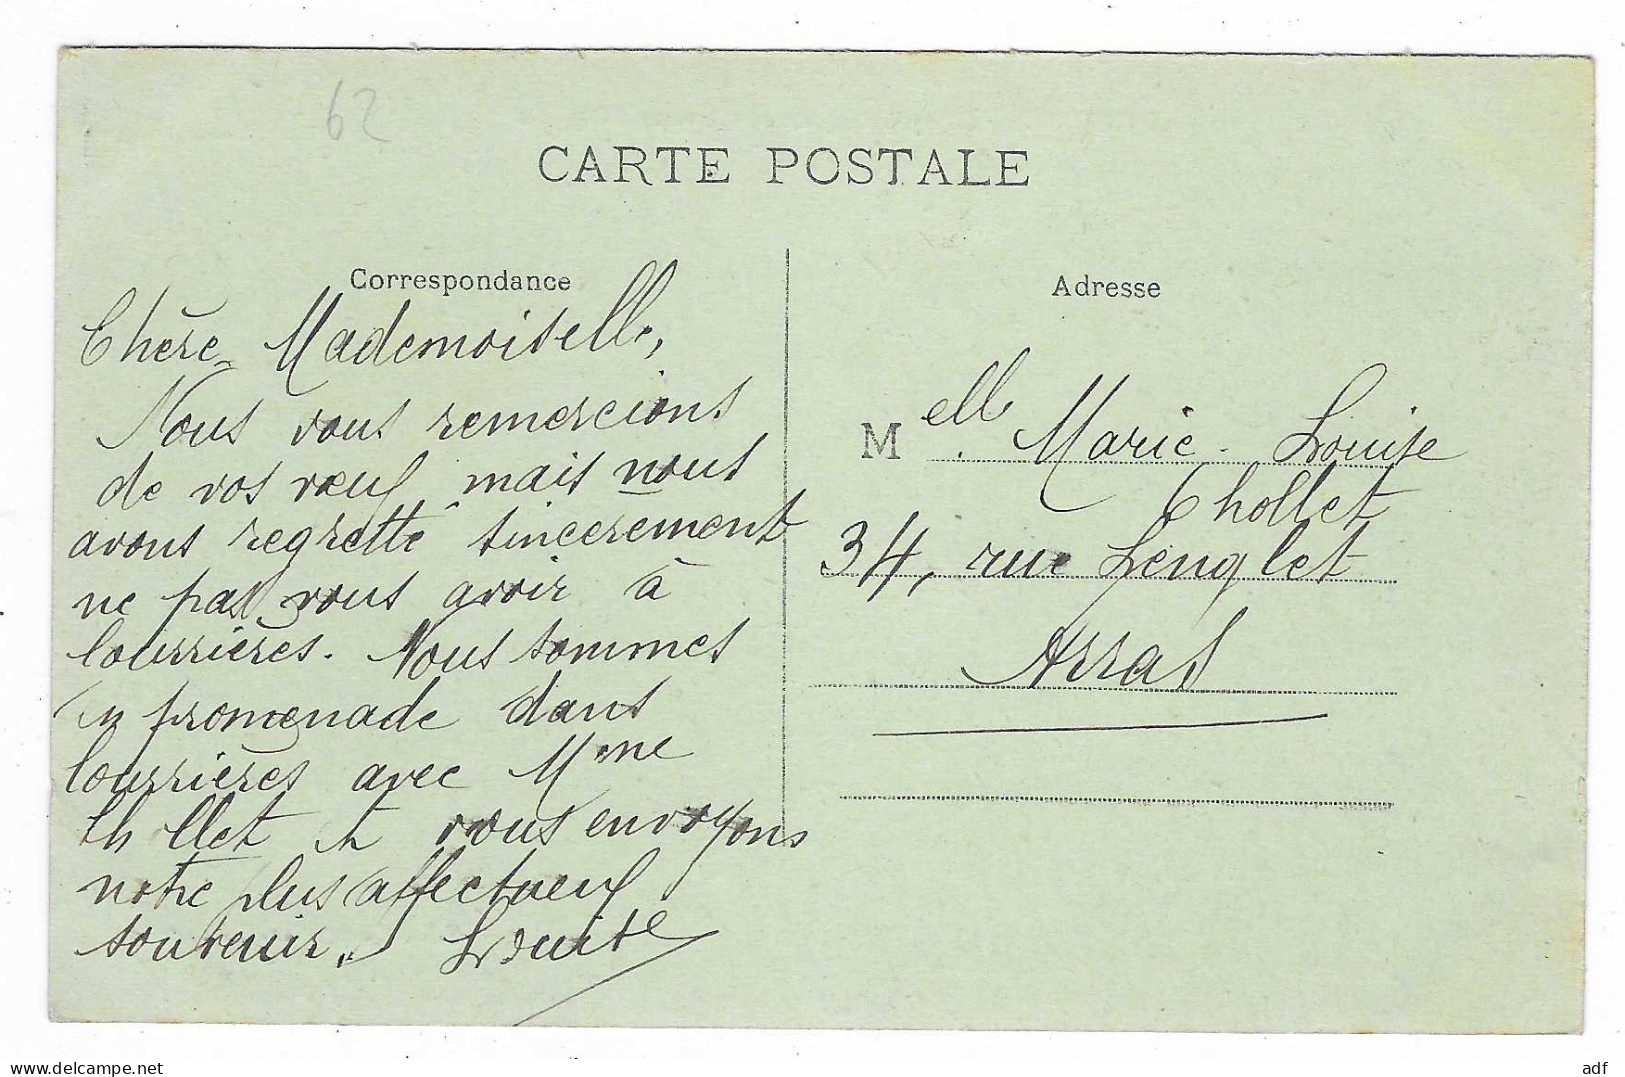 62
CARTE POSTALE
Correspondance
Chère Mademoiselle,
Nous vous remercions
de vos vœux, mais nous
avons regretté sincerement
ne pas vous avoir à
Courrières. Nous sommes
en promenade dans
Courrières avec Mme
Thollet et vous envoyons
notre plus affectueux
souvenir. Louise
Adresse
Melle Marie-Louise
Thollet
34, rue Lenglet
Arras
delcampe.net
adf